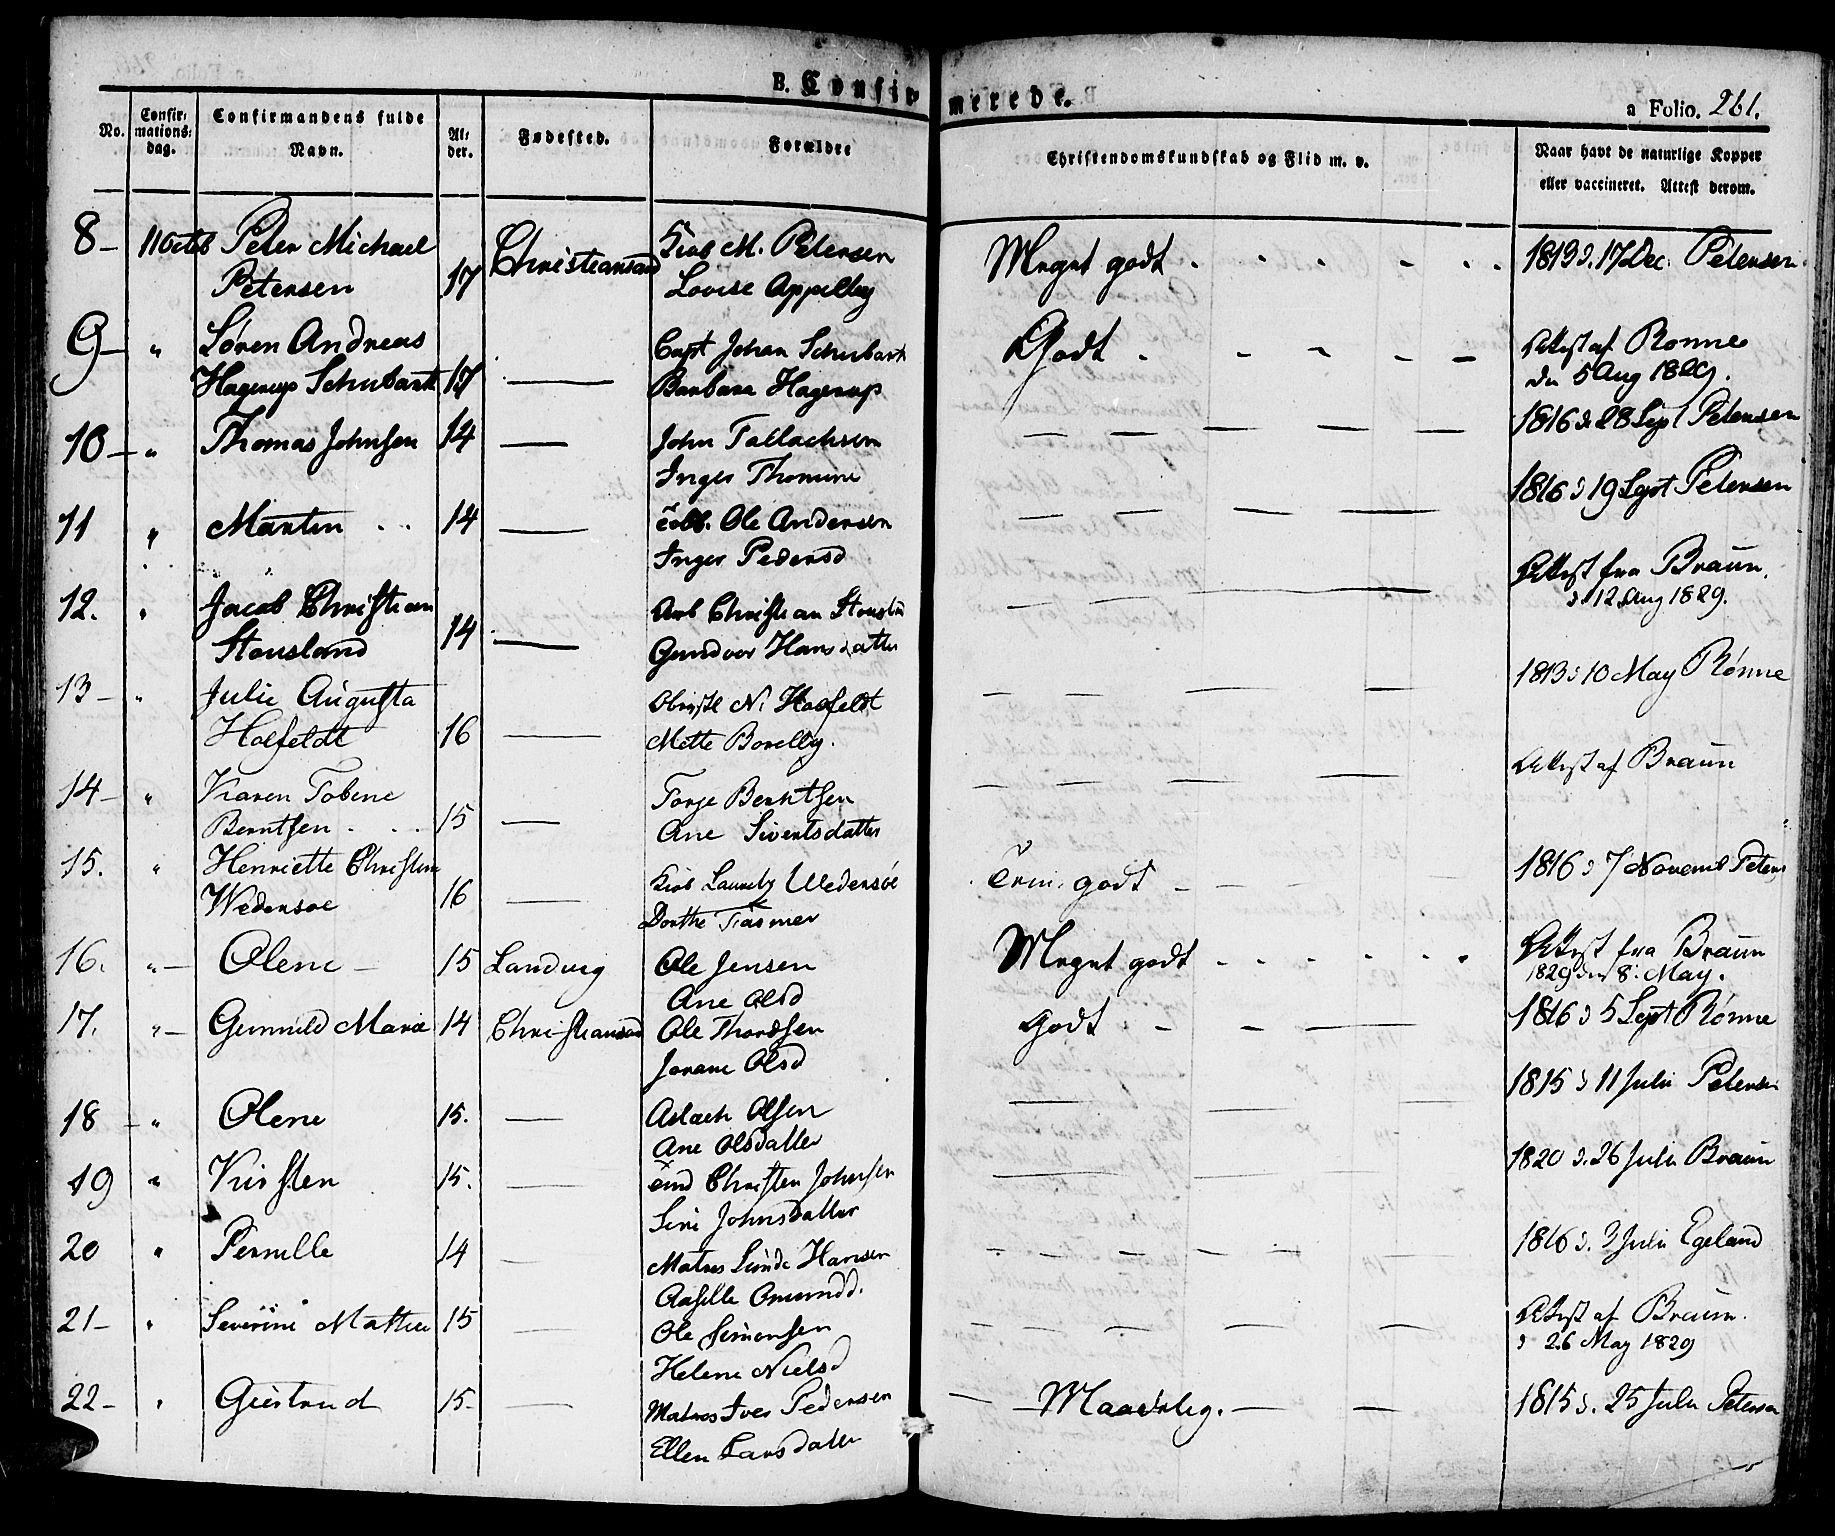 B. Confirmerede.
a Folio. 261.
No.
Confirmations: dag.
Confirmandens fulde Navn.
Alder.
Fødested.
Forældre
Christendomskundskab og Flid m. v.
Naar havt de naturlige Kopper eller vaccineret. Attest derom.
8 - 11 Octob Peter Michael Christiansand Kiøb M. Petersen Meget godt . . . . . . 1813 d. 17 Dec. Petersen.
Petersen 17 Lovise Appelby
9 - " Søren Andreas Capt Johan Schubarth Godt . - - - - Attest af Rønne
Hagerup Schubarth 17 — Barbara Hagerup den 5 Aug 1829.
10 - " Thomas Johnsen 14 — John Tallachsen — — — — — — 1816 d 28 Sept Petersen
Inger Thomine
11 " Martin . . 14 — Ole Andersen — — — — 1816 d 19 Sept Petersen
Inger Pedersd
12. " Jacob Christian Arb Christian Stousland — — — — Attest fra Braun.
Stousland 14 — Gundvor Hansdatter d 12 Aug 1829.
13 - " Julie Augusta N. Holfeldt — — — — 1813 d 10 May Rønne
Holfeldt 16 — Mette Borelly.
14 - " Karen Tobine Torge Berntsen — — — — — Attest af Braun
Berntsen . . . 15 — Ane Sivertsdatter
15. " Henriette Christine Kiøb Wedersøe godt - - - - 1816 d 7 Novemb Peters
Wedersøe 16 — Dorthe Tasmer
16. " — Olene — 15 Landvig Ole Jensen Meget godt . . . . . . Attest fra Braun
Ane Olsd 1829 den 8. May.
17. " — Gunnild Marie 14 Christiansand Ole Thordsen Godt - - — — 1816 d 5 Sept Rønne
Jorane Olsd
18 - " Olene 15. — Aslack Olsen — — — — 1815 d 11 Julii Petersen
Ane Olsdatter
19 " Kirsten 15. — Christen Johnsen — — — — 1820 d. 26 Julii Braun
Siri Johnsdatter
20 " Pernille 14 — Matros Hansen - — — — — 1816 d. 3 Julii Egeland
Aaselle Omundd.
21 - " Severine Mathea 15 — Ole Simonsen - — — — — — Attest af Braun.
Helene Nielsd d 26 May 1829
22 - " Giertrud 15 - — Matros Iver Pedersen — — Maadelig. — — — 1815 d. 25 Julii Petersen
Ellen Larsdatter